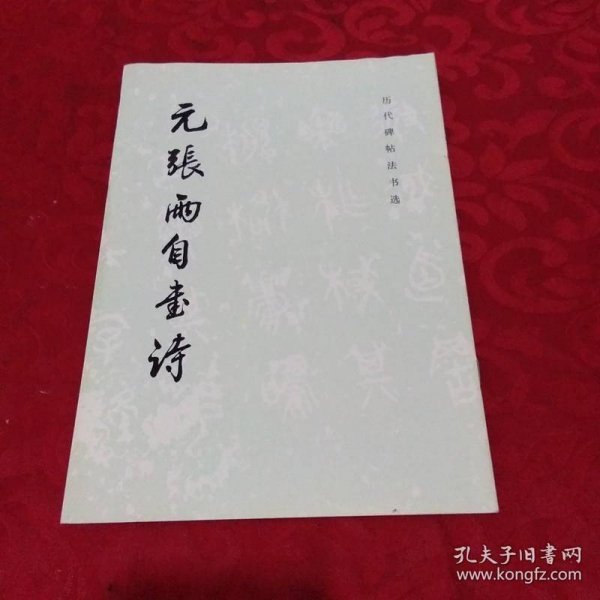 历代碑帖法书选
元張雨自書诗
孔夫子旧書网
www.kongfz.com